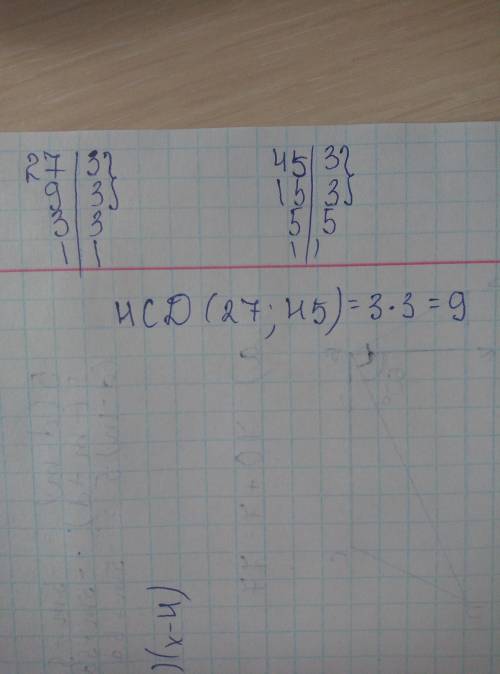 27 | 3}
9 | 3}
3 | 3
1 | 1
45 | 3}
15 | 3}
5 | 5
1 | 1
НСД (27; 45) = 3 · 3 = 9
)(x-4)